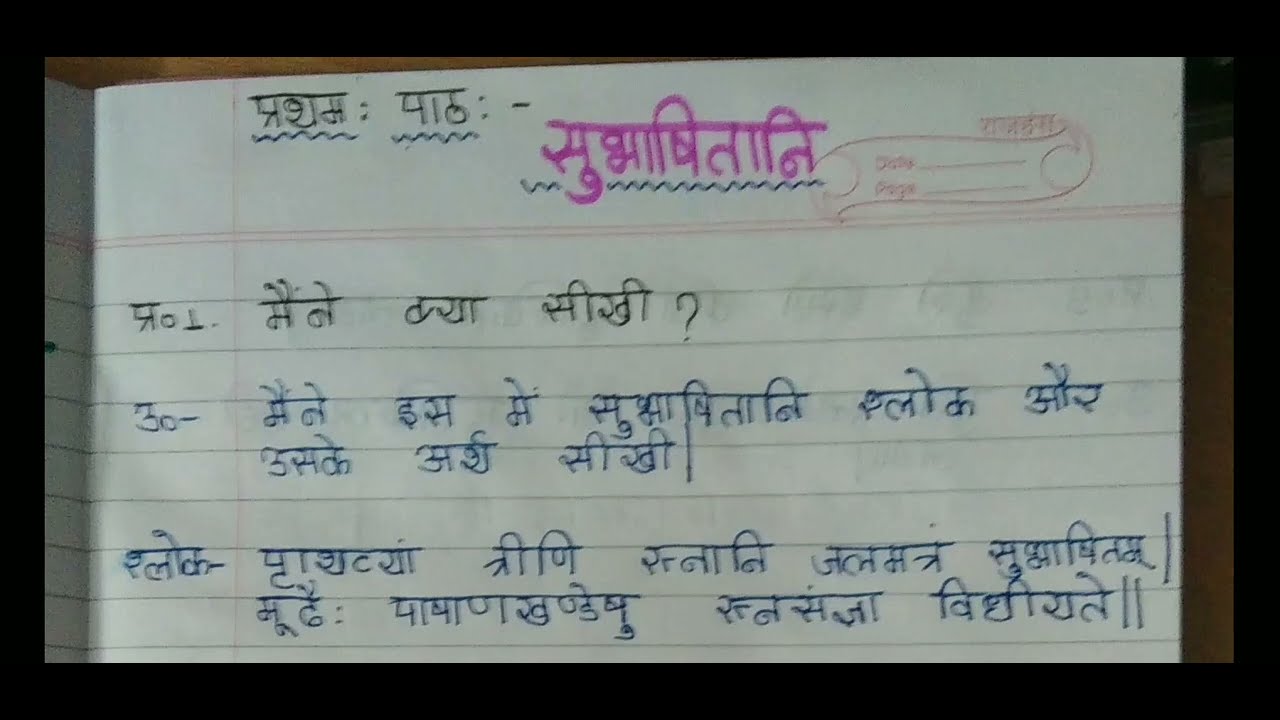 प्रथमः पाठः -
सुभाषितानि
राजहंस
Date
Page
प्र०1. मैंने क्या सीखी ?
उ०- मैंने इस में सुभाषितानि श्लोक और
उसके अर्थ सीखी|
श्लोक- पृथिव्यां त्रीणि रत्नानि जलमन्नं सुभाषितम्|
मूढैः पाषाणखण्डेषु रत्नसंज्ञा विधीयते||